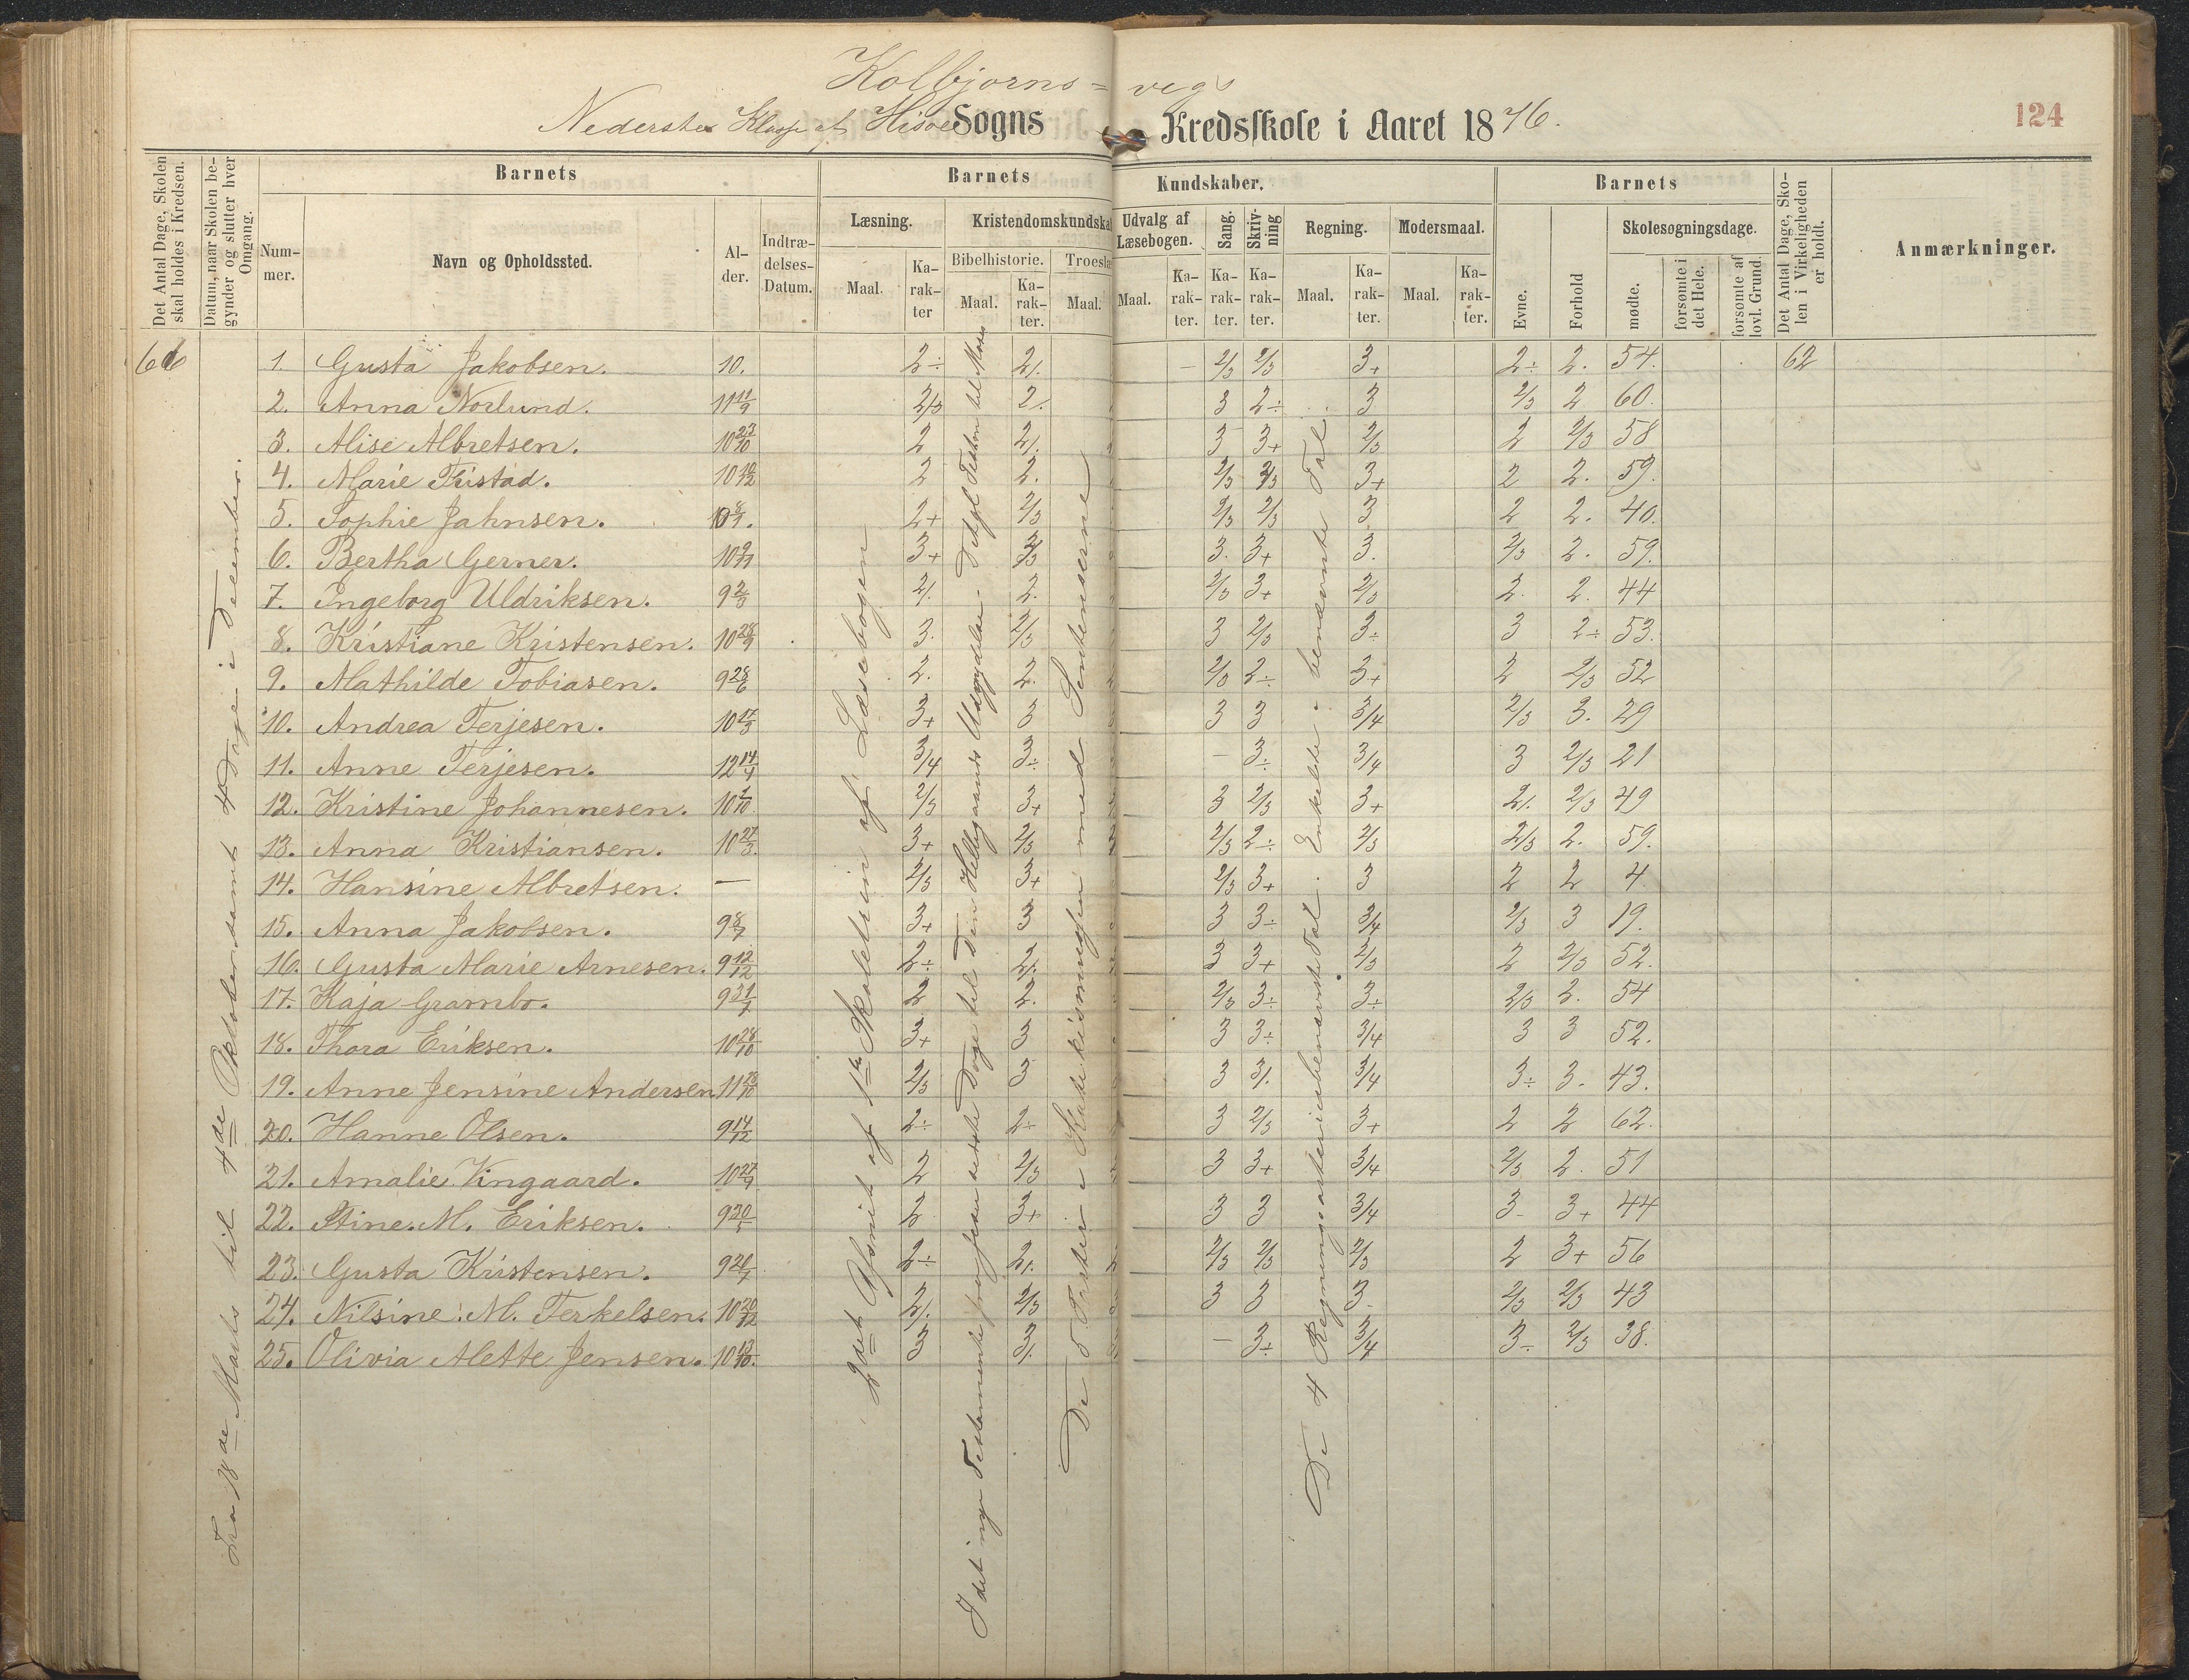 Kolbjørns= vegs
Nederste Klasse af Hisøe Sogns Kredsskole i Aaret 1876.
124
Det Antal Dage, Skolen skal holdes i Kredsen.
Datum, naar Skolen begynder og slutter hver Omgang.
Barnets
Nummer.
Navn og Opholdssted.
Alder.
Indtrædelses-Datum.
Barnets Kundskaber.
Læsning.
Maal.
Karakter
Kristendomskundska
Bibelhistorie.
Maal.
Karakter.
Troeslæ
Maal.
Udvalg af Læsebogen.
Maal.
Karakter.
Sang.
Karakter.
Skrivning
Karakter.
Regning.
Maal.
Karakter.
Modersmaal.
Maal.
Karakter.
Barnets
Evne.
Forhold
Skolesøgningsdage.
mødte.
forsømte i det Hele.
forsømte af lovl. Grund.
Det Antal Dage, Skolen i Virkeligheden er holdt.
Anmærkninger.
66
Fra 18de Marts til 4de Oktober samt 4 Dage i Desember.
2det Afsnit af 1ste Skoletrin af Læsebogen
De 5 Parter i Katekismusen med Sentenserne
De 4 Regningsarter i ubenævnte Tal. Enkelte i benævnte Tal.
1. Gusta Jakobsen. 10. 2÷ 2/. – 2/3 2/3 3+ 2÷ 2. 54. 62
2. Anna Norlund. 11 11/9 2/3 2/. 3 2÷ 3 2/3 2 60.
3. Alise Albretsen. 10 27/10 2 2/. 3 3+ 2/3 2 2/3 58
4. Marie Fristad. 2 2. 2/3 2/3 3+ 2 2. 59.
5. Sophie Jahnsen. 2+ 2/3 2/3 2/3 3 2 2. 40.
6. Bertha Gerner. 3+ 2/3 3. 3+ 3. 2/3 2. 59.
7. Ingeborg Uldriksen. 9 2/3 2/. 2. 2/3 3+ 2/3 2. 2. 44
8. Kristiane Kristensen. 10 28/9 3. 2/3 3 2/3 3÷ 3 2÷ 53.
9. Mathilde Tobiasen. 9 28/6 2. 2. 2/3 2÷ 3+ 2 2/3 52
10. Andrea Terjesen. 10 17/3 3+ 3 3 3 3/4 2/3 3. 29
11. Anne Terjesen. 12 14/4 3/4 3÷ – 3÷ 3/4 3 2/3 21
12. Kristine Johannesen. 10 1/10 2/3 3+ 3 2/3 3+ 2/. 2/3 49
13. Anna Kristiansen. 10 27/3 3+ 2/3 2/3 2÷ 2/3 2/3 2. 59.
14. Hansine Albretsen. – 2/3 3+ 2/3 3+ 3 2 2 4
15. Anna Jakobsen. 9 8/7 3+ 3 3 3÷ 3/4 2/3 3 19.
16. Gusta Marie Arnesen. 9 12/12 2÷ 2/. 3 3+ 2/3 2 2/3 52.
17. Kaja Grambo. 9 31/7 2 2. 2/3 3÷ 3÷ 2/3 2. 54
18. Thora Eriksen. 10 28/10 3+ 3 3 3÷ 3/4 3 3 52.
19. Anne Jensine Andersen 11 28/10 2/3 3 3 3/. 3/4 3÷ 3. 43.
20. Hanne Olsen. 9 14/12 2÷ 2÷ 3 2/3 3+ 2 2 62.
21. Amalie Vingaard. 10 27/9 2 2/3 3 3+ 3/4 2/3 2. 51
22. Stine. M. Eriksen. 2 3+ 3 3 3/4 3- 3+ 44
23. Gusta Kristensen. 2÷ 2/. 2/3 2/3 2/3 2 3+ 56
24. Nilsine. M. Terkelsen. 10 20/12 2/. 2/3 3 3 3. 2/3 2/3 43
25. Olivia Alette Jensen. 3 3/. – 3÷ 3/4 3÷ 2/3 38.